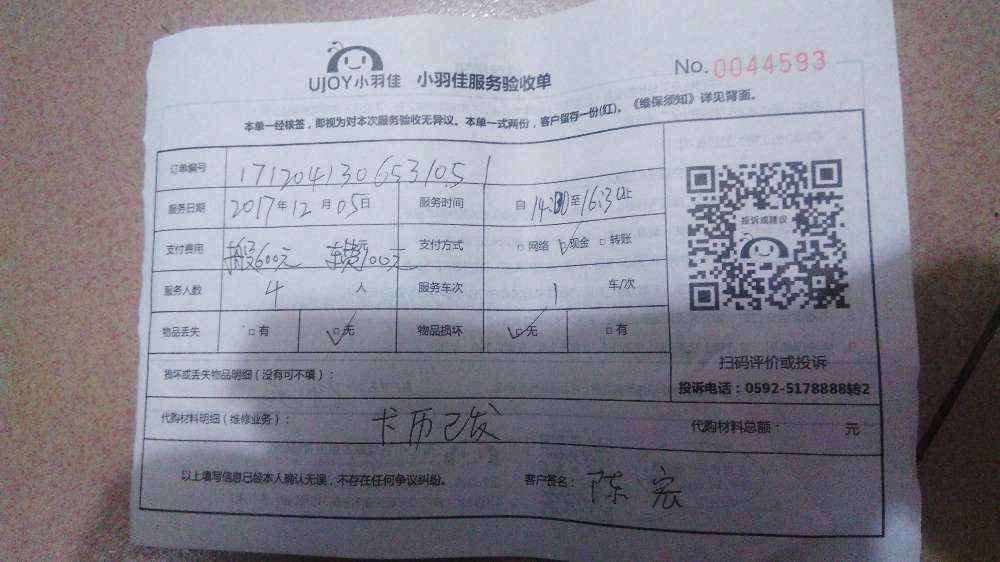 UJOY小羽佳 小羽佳服务验收单 No.0044593
本单一经核签，即视为对本次服务验收无异议。本单一式两份，客户留存一份(红)。《维保须知》详见背面。
订单编号 171204130653105 1
服务日期 2017年12月05日 服务时间 自14:30至16:30止
支付费用 600元 车费100元 元 支付方式 □网络 ☑现金 □转账
服务人数 4 人 服务车次 1 车/次
物品丢失 □有 ☑无 物品损坏 ☑无 □有
投诉或建议
扫码评价或投诉
投诉电话：0592-5178888转2
损坏或丢失物品明细（没有可不填）：
代购材料明细（维修业务）： 卡历已发 代购材料总额： 元
以上填写信息已经本人确认无误，不存在任何争议纠纷。 客户签名：陈宏